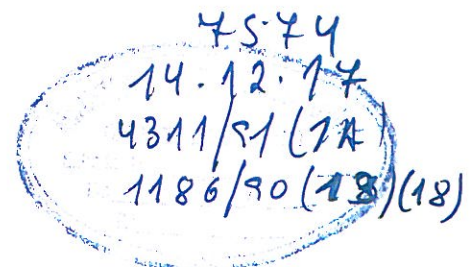 7574
14.12.17
4311/91 (1A)
1186/90 (18)(18)